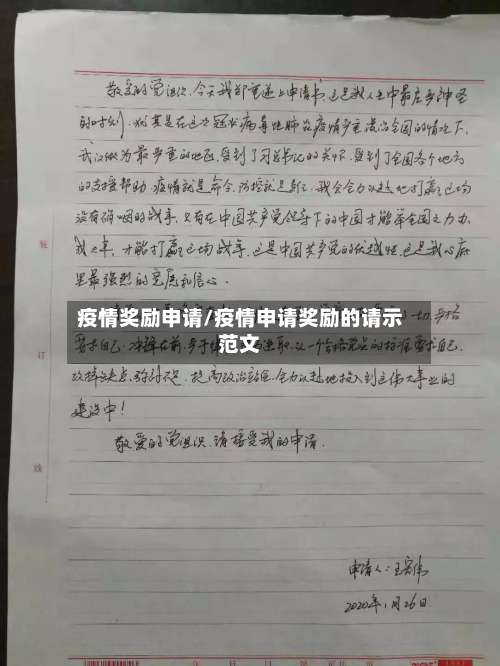 敬爱的党组织，今天我郑重递上申请书，这是我人生中最庄严神圣
的时刻，尤其是在这次冠状病毒性肺炎疫情严重波及全国的情况下，
武汉做为最严重的地区，受到了习总书记的关怀，受到了全国各个地方
的支援帮助，疫情就是命令，防控就是责任，我会全力以赴地打赢这场
没有硝烟的战争，只有在中国共产党领导下的中国才能举全国之力，办
我之事，才能打赢这场战争，这是中国共产党的优越性，这是我心底
里最强烈的克服和信心。
一切，严格
疫情奖励申请/疫情申请奖励的请示
范文
要求自己，冲锋在前，以一个合格党员的标准要求自己，
改掉缺点，弥补不足，提高政治站位，全力以赴地投入到这伟大事业的
建设中！
敬爱的党组织，请接受我的申请。
装
订
线
申请人：王宏伟
2020年1月26日